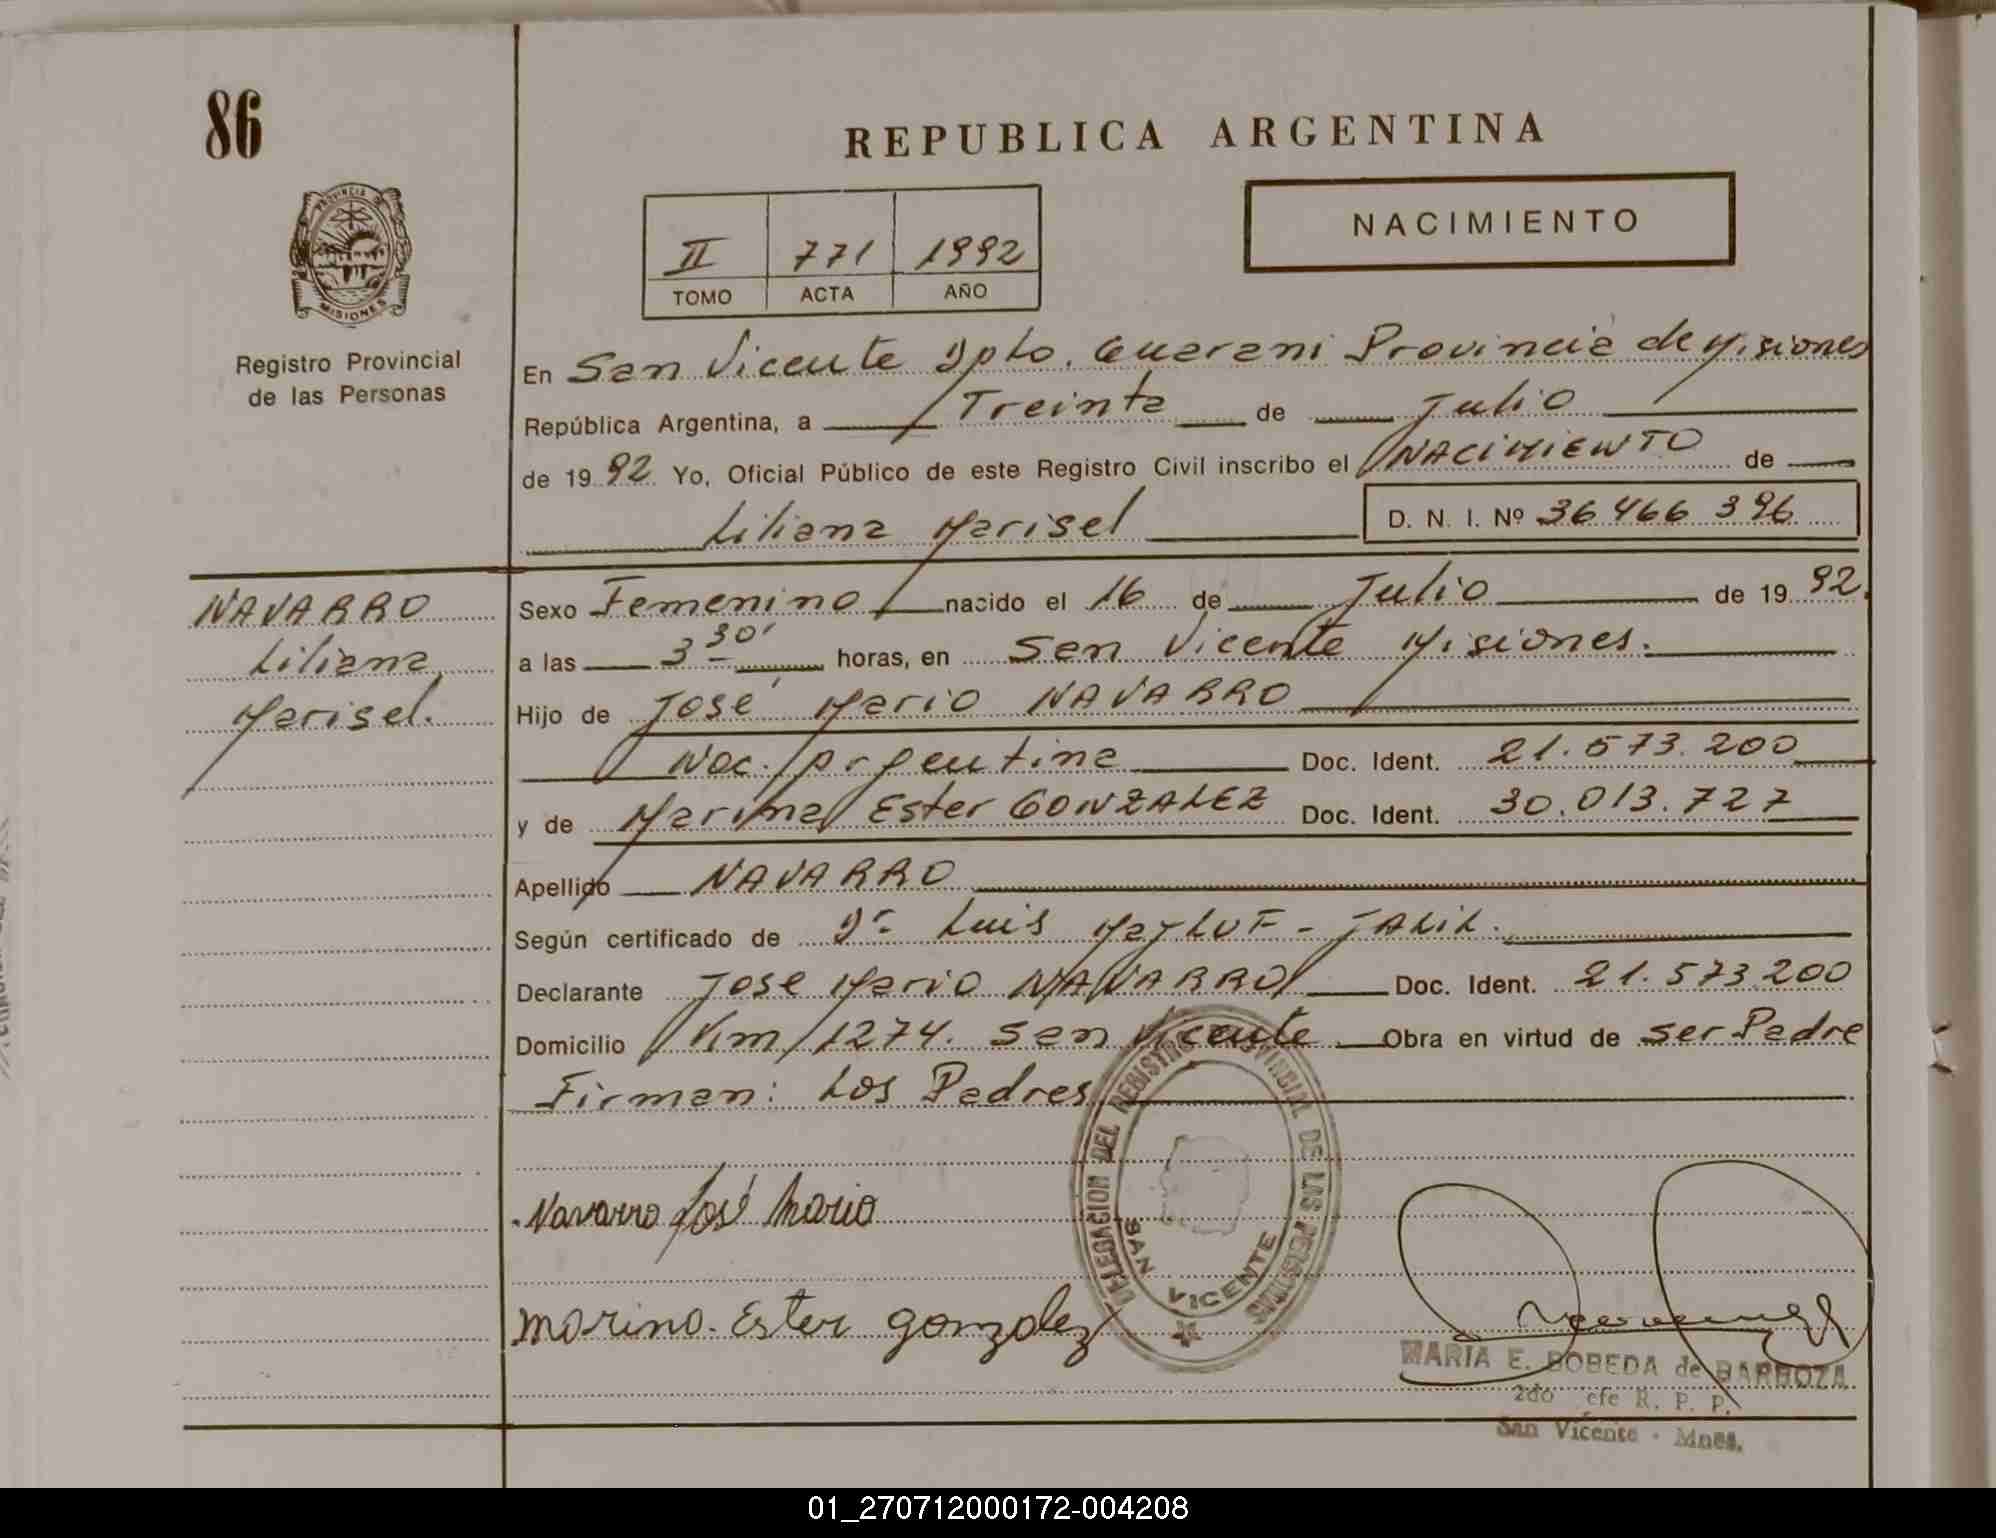 86
REPUBLICA ARGENTINA
PROVINCIA DE
MISIONES
II 771 1992
TOMO ACTA AÑO
NACIMIENTO
Registro Provincial
de las Personas
En San Vicente Dpto. Guarani Provincia de Misiones
República Argentina, a Treinta de Julio
de 1992 Yo, Oficial Público de este Registro Civil inscribo el NACIMIENTO de
Liliana Marisel D. N. I. Nº 36.466 396
NAVARRO
Liliana
Marisel.
Sexo Femenino nacido el 16 de Julio de 1992.
a las 3 30' horas, en San Vicente Misiones.
Hijo de José Mario NAVARRO
Nac. Argentina Doc. Ident. 21.573.200
y de Marina Ester GONZALEZ Doc. Ident. 30.013.727
Apellido NAVARRO
Según certificado de Dr. Luis MAYLUF - JALIL.
Declarante Jose Mario NAVARRO Doc. Ident. 21.573.200
Domicilio Km 1274. San Vicente Obra en virtud de ser Padre
Firman: Los Padres
DELEGACION DEL REGISTRO PROVINCIAL DE LAS PERSONAS
SAN VICENTE
Navarro José Mario
Marina Ester gonzalez
MARIA E. BOBEDA de BARBOZA
2do efe R. P. P.
San Vicente - Mnes.
01_270712000172-004208